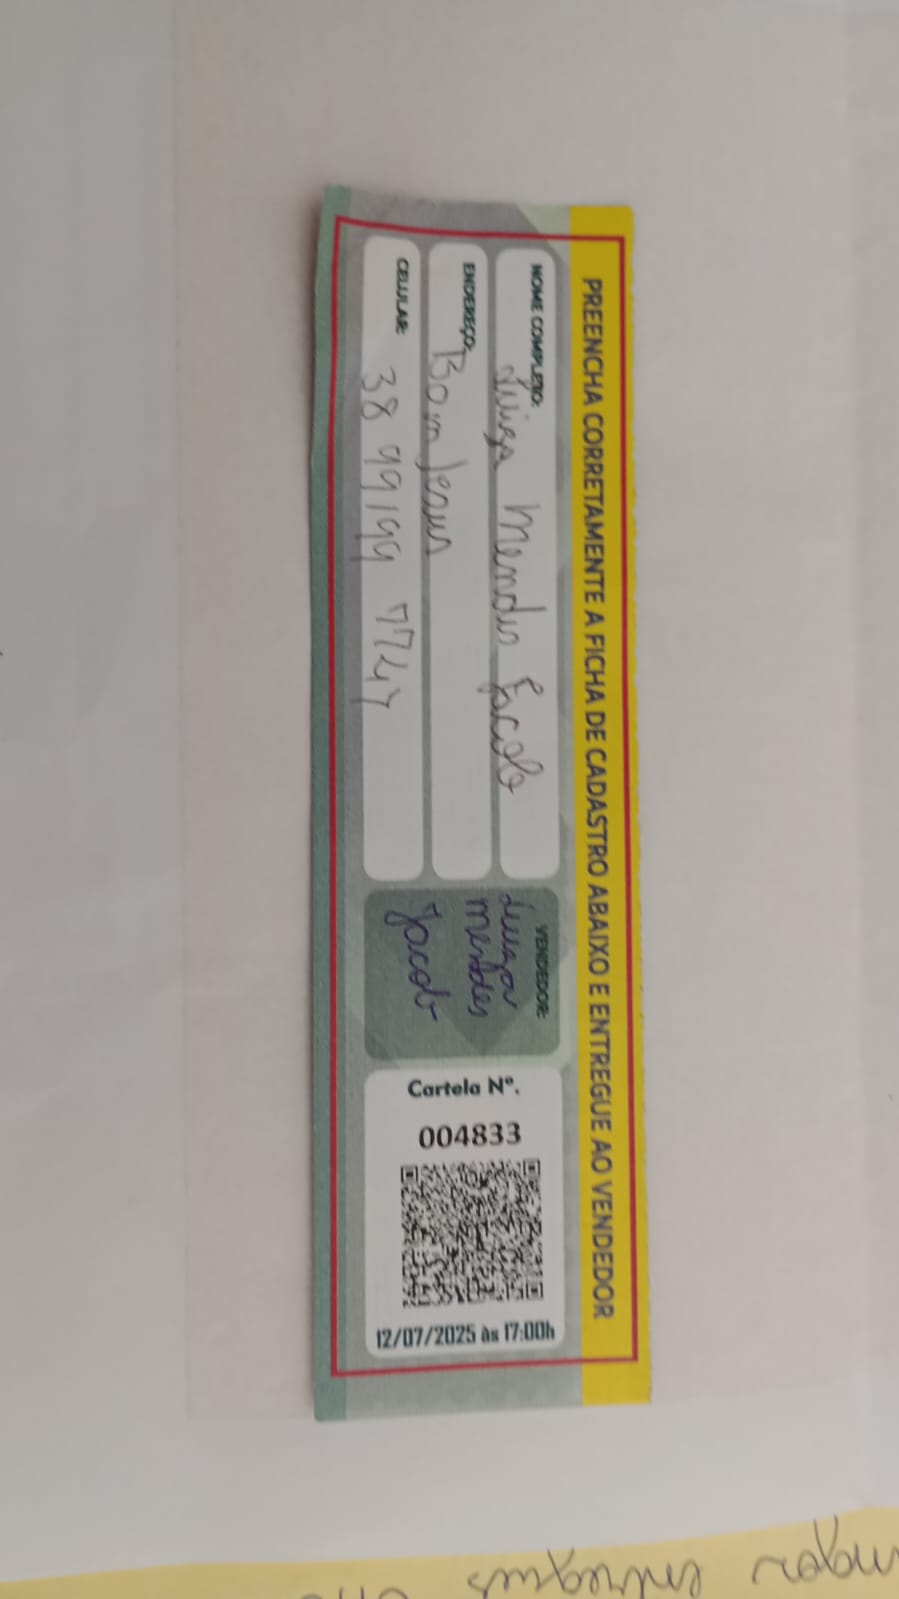 PREENCHA CORRETAMENTE A FICHA DE CADASTRO ABAIXO E ENTREGUE AO VENDEDOR
NOME COMPLETO: Luiza Mendes Jacob
ENDEREÇO: Bom Jesus
CELULAR: 38 99199 7747
VENDEDOR:
Luiza
Mendes
Jacob
Cartela Nº.
004833
12/07/2025 às 17:00h